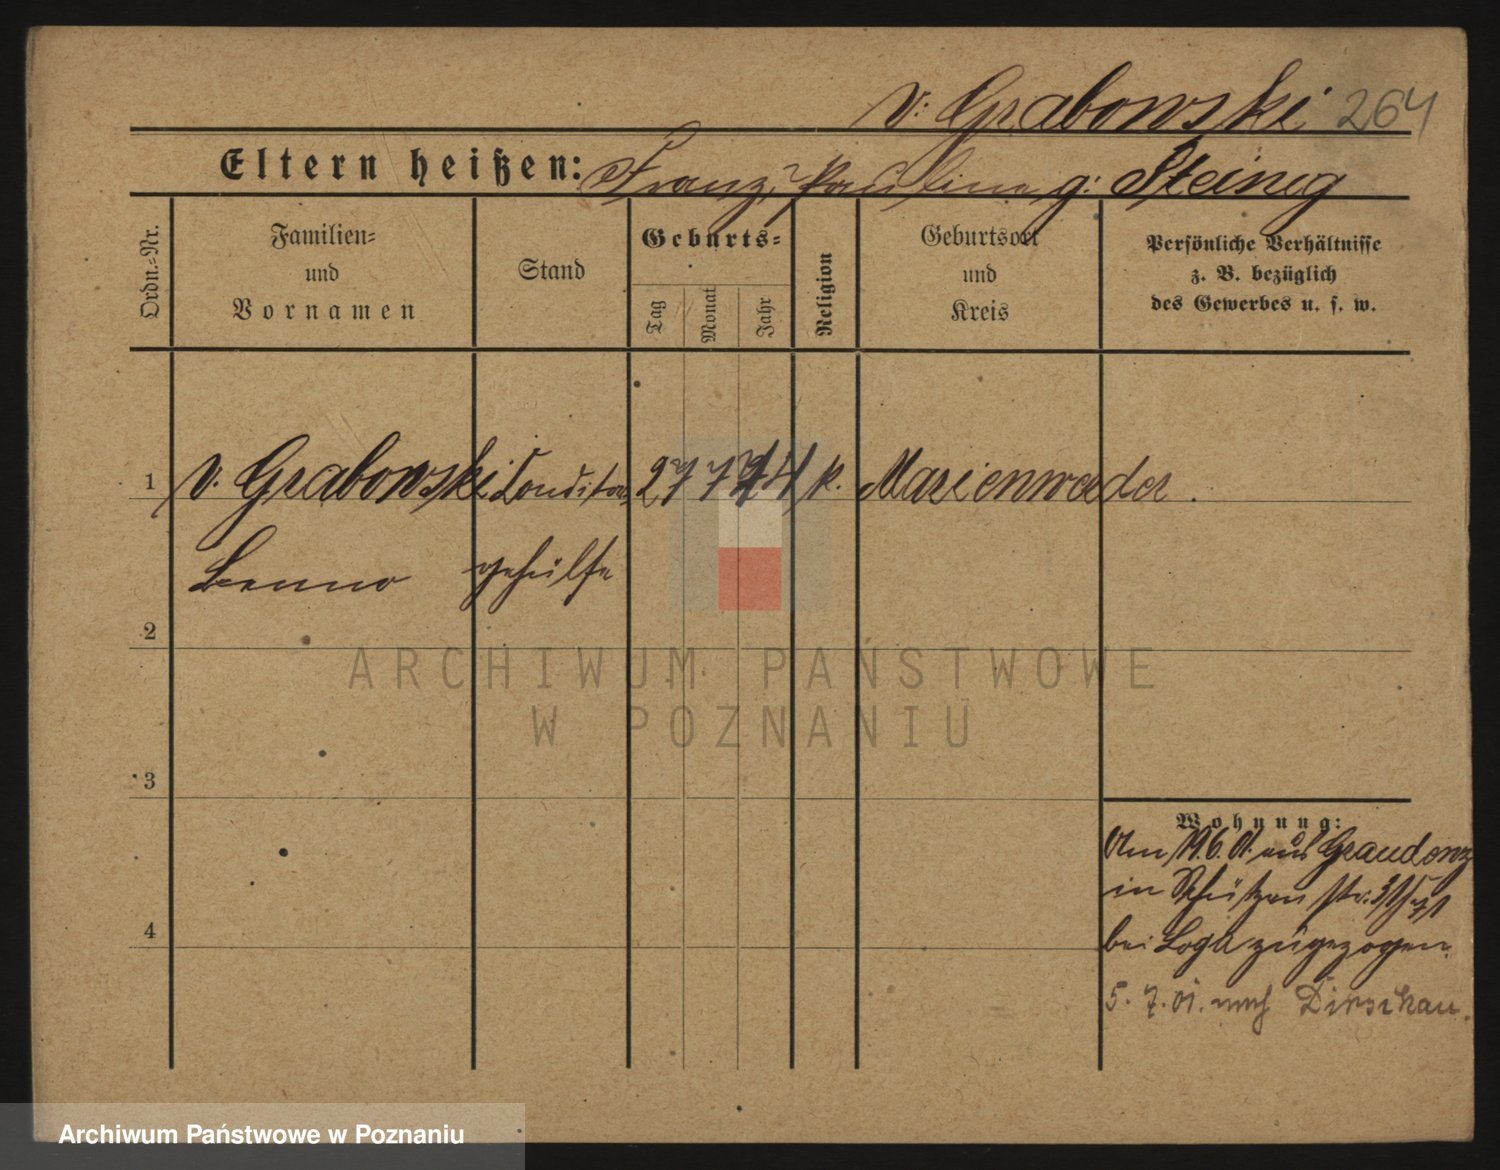 v. Grabowski 264
Eltern heißen: Franz, Paulina g. Steinig
Ordn.-Nr.
Familien-
und
Vornamen
Stand
Geburts-
Tag
Monat
Jahr
Religion
Geburtsort
und
Kreis
Persönliche Verhältnisse
z. B. bezüglich
des Gewerbes u. s. w.
1 v. Grabowski Conditor 27 7 74 k. Marienwerder.
Benno gehülfe
2
ARCHIWUM PAŃSTWOWE
W POZNANIU
3
Wohnung:
Am 19.6.01. aus Graudenz
in Schützen str. 31
bei Loga zugezogen.
4
5.7.01. nach Dirschau.
Archiwum Państwowe w Poznaniu